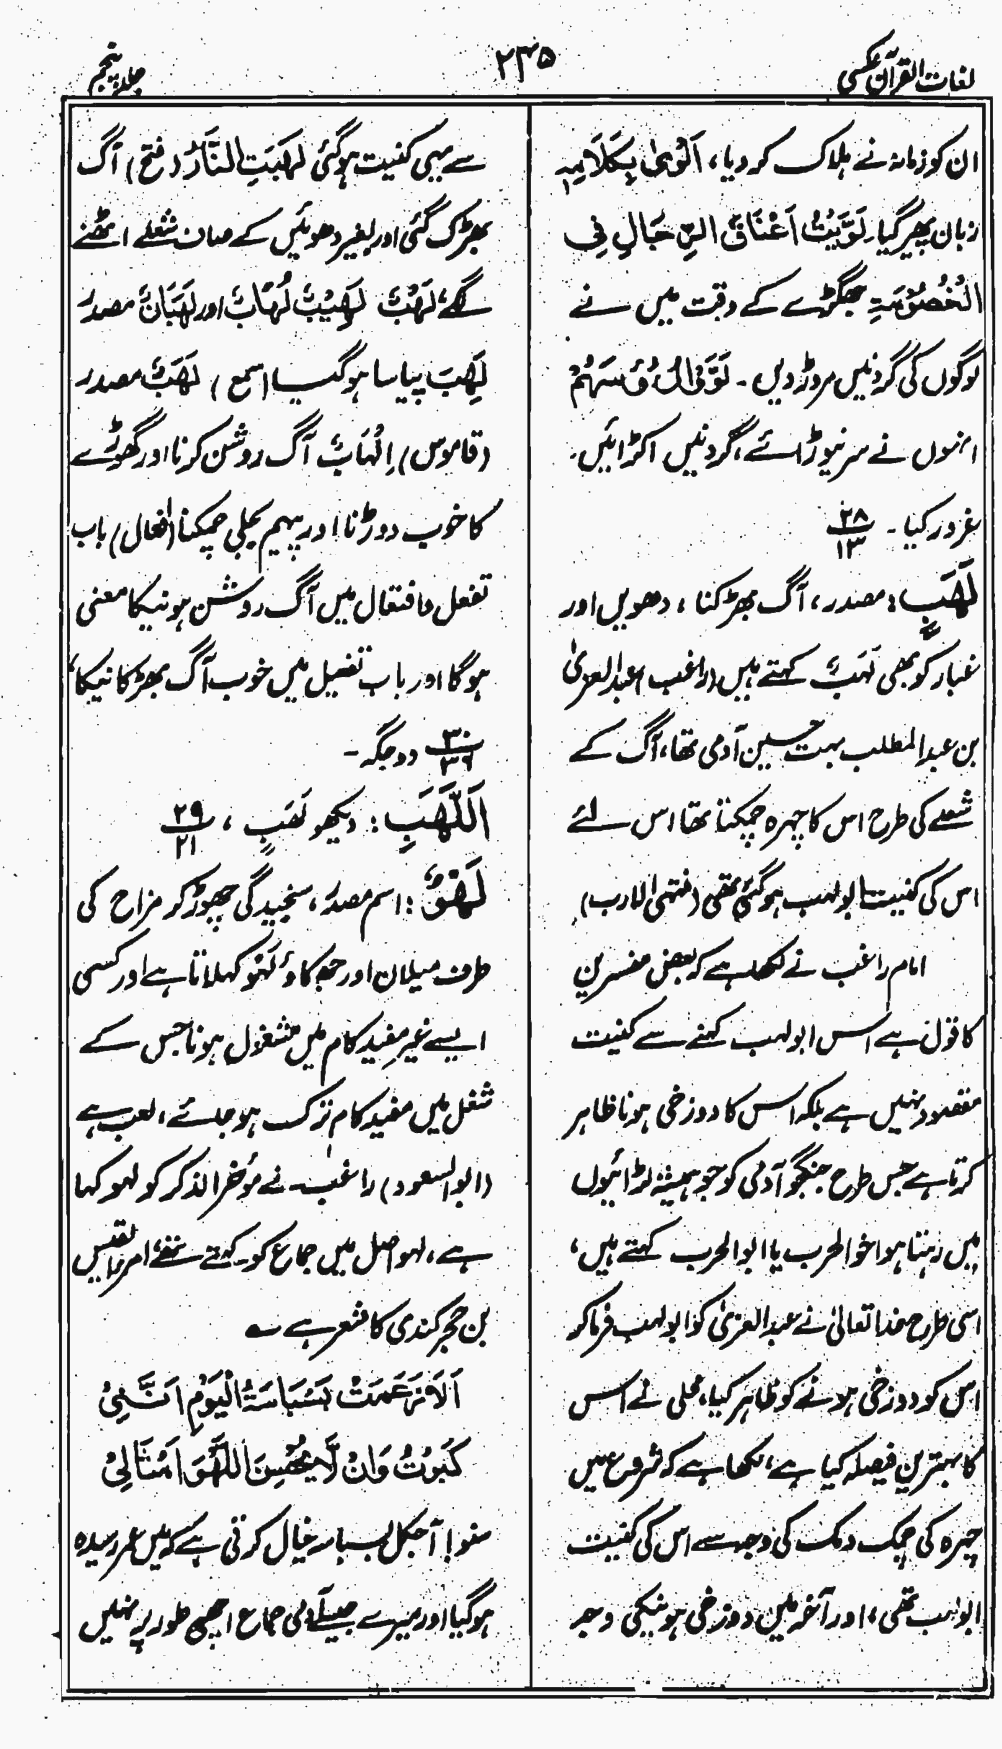 لغات القرآن عکسی
۲۳۵
جلد پنجم
ان کو زمانہ نے ہلاک کر دیا، اَلْوٰی بِکَلَامِہٖ
زبان پھیر گیا۔ لَوَّیْتُ اَعْنَاقَ الرِّجَالِ فِی
الْخُصُوْمَۃِ جھگڑے کے وقت میں نے
لوگوں کی گردنیں مروڑ دیں۔ لَوَّوْا رُءُوْسَہُمْ
انہوں نے سر نیوڑائے، گردنیں اکڑائیں،
غرور کیا۔ ۲۸/۱۳
لَھَبٍ: مصدر، آگ بھڑکنا، دھویں اور
غبار کو بھی لَہَبٌ کہتے ہیں (راغب) عبدالعزیٰ
بن عبدالمطلب بہت حسین آدمی تھا، آگ کے
شعلے کی طرح اس کا چہرہ چمکتا تھا اس لئے
اس کی کنیت ابولہب ہوگئی تھی (منتہی الارب)
امام راغب نے لکھا ہے کہ بعض مفسرین
کا قول ہے اس ابولہب کہنے سے کنیت
مقصود نہیں ہے بلکہ اس کا دوزخی ہونا ظاہر
کرتا ہے جس طرح جنگجو آدمی کو جو ہمیشہ لڑائیوں
میں رہتا ہو اخوالحرب یا ابوالحرب کہتے ہیں،
اسی طرح خدا تعالیٰ نے عبدالعزیٰ کو ابولہب فرما کر
اس کو دوزخی ہونے کو ظاہر کیا، محلی نے اس
کا بہترین فیصلہ کیا ہے، لکھا ہے کہ شروع میں
چہرہ کی چمک دمک کی وجہ سے اس کی کنیت
ابولہب تھی، اور آخر میں دوزخی ہونیکی وجہ
سے یہی کنیت ہوگئی لَہَبَتِ النَّارُ (فتح) آگ
بھڑک گئی اور بغیر دھوئیں کے صاف شعلے اٹھنے
لگے، لَہْبٌ لَہِیْبٌ لُہَابٌ اور لَہَبَانٌ مصدر
لَہِبَ پیاسا ہوگیا (سمع) لَہَبٌ مصدر
(قاموس) اِلْہَابٌ آگ روشن کرنا اور گھوڑے
کا خوب دوڑنا اور پیہم بجلی چمکنا (افعال) باب
تفعل و افتعال میں آگ روشن ہونیکا معنی
ہوگا اور باب تفعیل میں خوب آگ بھڑکانیکا،
۳۰/۳۶ دو جگہ۔
اَللَّھَبِ: دیکھو لَھَبٍ، ۲۹/۲۱
لَھْوٌ: اسم مصدر، سنجیدگی چھوڑ کر مزاح کی
طرف میلان اور جھکاؤ لَہْو کہلاتا ہے اور کسی
ایسے غیر مفید کام میں مشغول ہونا جس کے
شغل میں مفید کام ترک ہو جائے، لعب ہے
(ابوالسعود) راغب نے مؤخر الذکر کو لہو کہا
ہے، لہو اصل میں جماع کو کہتے تھے، امرءالقیس
بن حجر کندی کا شعر ہے ؎
اَلَا زَعَمَتْ بَسْبَاسَۃُ الْیَوْمَ اَنَّنِیْ
کَبِرْتُ وَاَنْ لَّا یُحْسِنَ اللَّھْوَ اَمْثَالِیْ
سنو! آجکل بسباسہ خیال کرتی ہے کہ میں عمر رسیدہ
ہوگیا اور میرے جیسے آدمی جماع اچھی طور پر نہیں